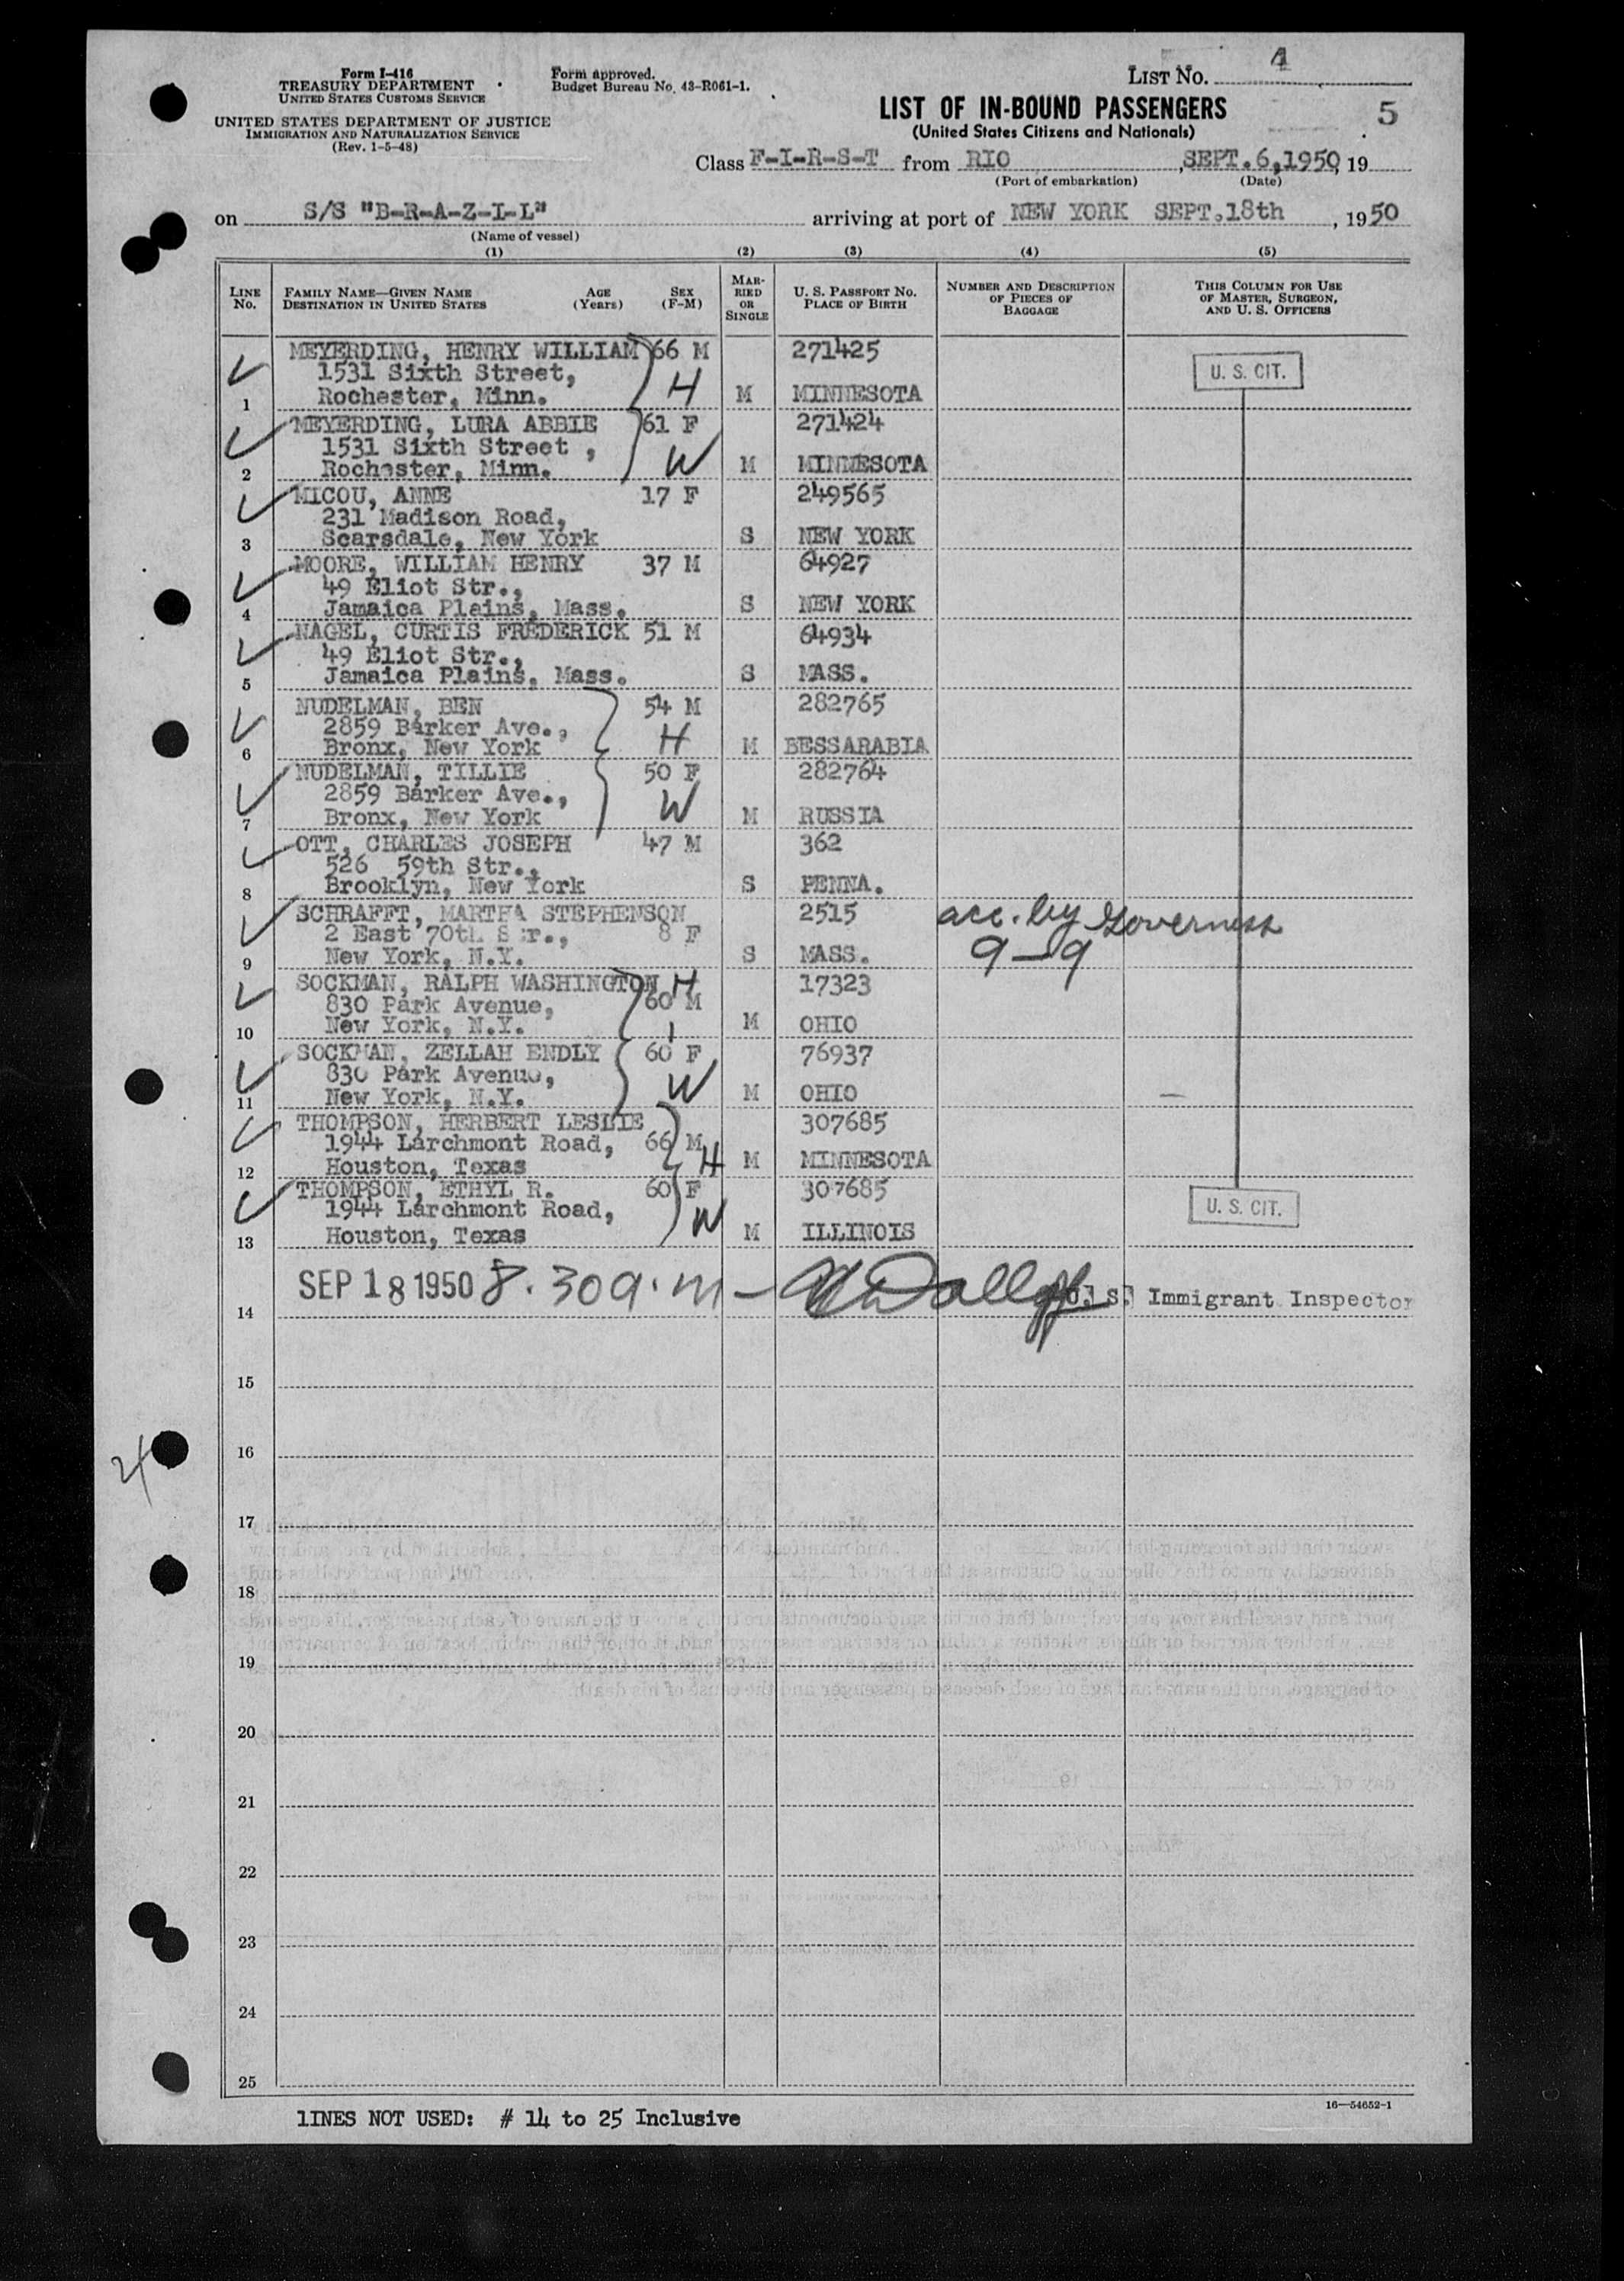 Form I-416
TREASURY DEPARTMENT
UNITED STATES CUSTOMS SERVICE
UNITED STATES DEPARTMENT OF JUSTICE
IMMIGRATION AND NATURALIZATION SERVICE
(Rev. 1-5-48)
Form approved.
Budget Bureau No. 43-R061-1.
LIST NO. 4
LIST OF IN-BOUND PASSENGERS
(United States Citizens and Nationals)
5
Class F-I-R-S-T from RIO, SEPT.6,1950, 19
(Port of embarkation) (Date)
on S/S "B-R-A-Z-I-L" arriving at port of NEW YORK SEPT.18th, 1950
(Name of vessel)
(1) (2) (3) (4) (5)
LINE NO. FAMILY NAME—GIVEN NAME DESTINATION IN UNITED STATES AGE (Years) SEX (F-M) MARRIED OR SINGLE U. S. PASSPORT NO. PLACE OF BIRTH NUMBER AND DESCRIPTION OF PIECES OF BAGGAGE THIS COLUMN FOR USE OF MASTER, SURGEON, AND U. S. OFFICERS
MEYERDING, HENRY WILLIAM 66 M 271425 U. S. CIT.
1531 Sixth Street, H
1 Rochester, Minn. M MINNESOTA
MEYERDING, LURA ABBIE 61 F 271424
1531 Sixth Street , W
2 Rochester, Minn. M MINNESOTA
MICOU, ANNE 17 F 249565
231 Madison Road,
3 Scarsdale, New York S NEW YORK
MOORE, WILLIAM HENRY 37 M 64927
49 Eliot Str.,
4 Jamaica Plains, Mass. S NEW YORK
NAGEL, CURTIS FREDERICK 51 M 64934
49 Eliot Str.,
5 Jamaica Plains, Mass. S MASS.
NUDELMAN, BEN 54 M 282765
2859 Barker Ave., H
6 Bronx, New York M BESSARABIA
NUDELMAN, TILLIE 50 F 282764
2859 Barker Ave., W
7 Bronx, New York M RUSSIA
OTT, CHARLES JOSEPH 47 M 362
526 59th Str.,
8 Brooklyn, New York S PENNA.
SCHRAFFT, MARTHA STEPHENSON 2515 acc. by Governess
2 East 70th Str., 8 F 9-9
9 New York, N.Y. S MASS.
SOCKMAN, RALPH WASHINGTON H 17323
830 Park Avenue, 60 M
10 New York, N.Y. M OHIO
SOCKMAN, ZELLAH ENDLY 60 F 76937
830 Park Avenue, W
11 New York, N.Y. M OHIO
THOMPSON, HERBERT LESLIE 307685
1944 Larchmont Road, 66 M H
12 Houston, Texas M MINNESOTA
THOMPSON, ETHYL R. 60 F 307685 U. S. CIT.
1944 Larchmont Road, W
13 Houston, Texas M ILLINOIS
SEP 18 1950 8.30 a.m — U. S. Immigrant Inspector
14
15
16
17
18
19
20
21
22
23
24
25
lINES NOT USED: # 14 to 25 Inclusive
16—54652-1